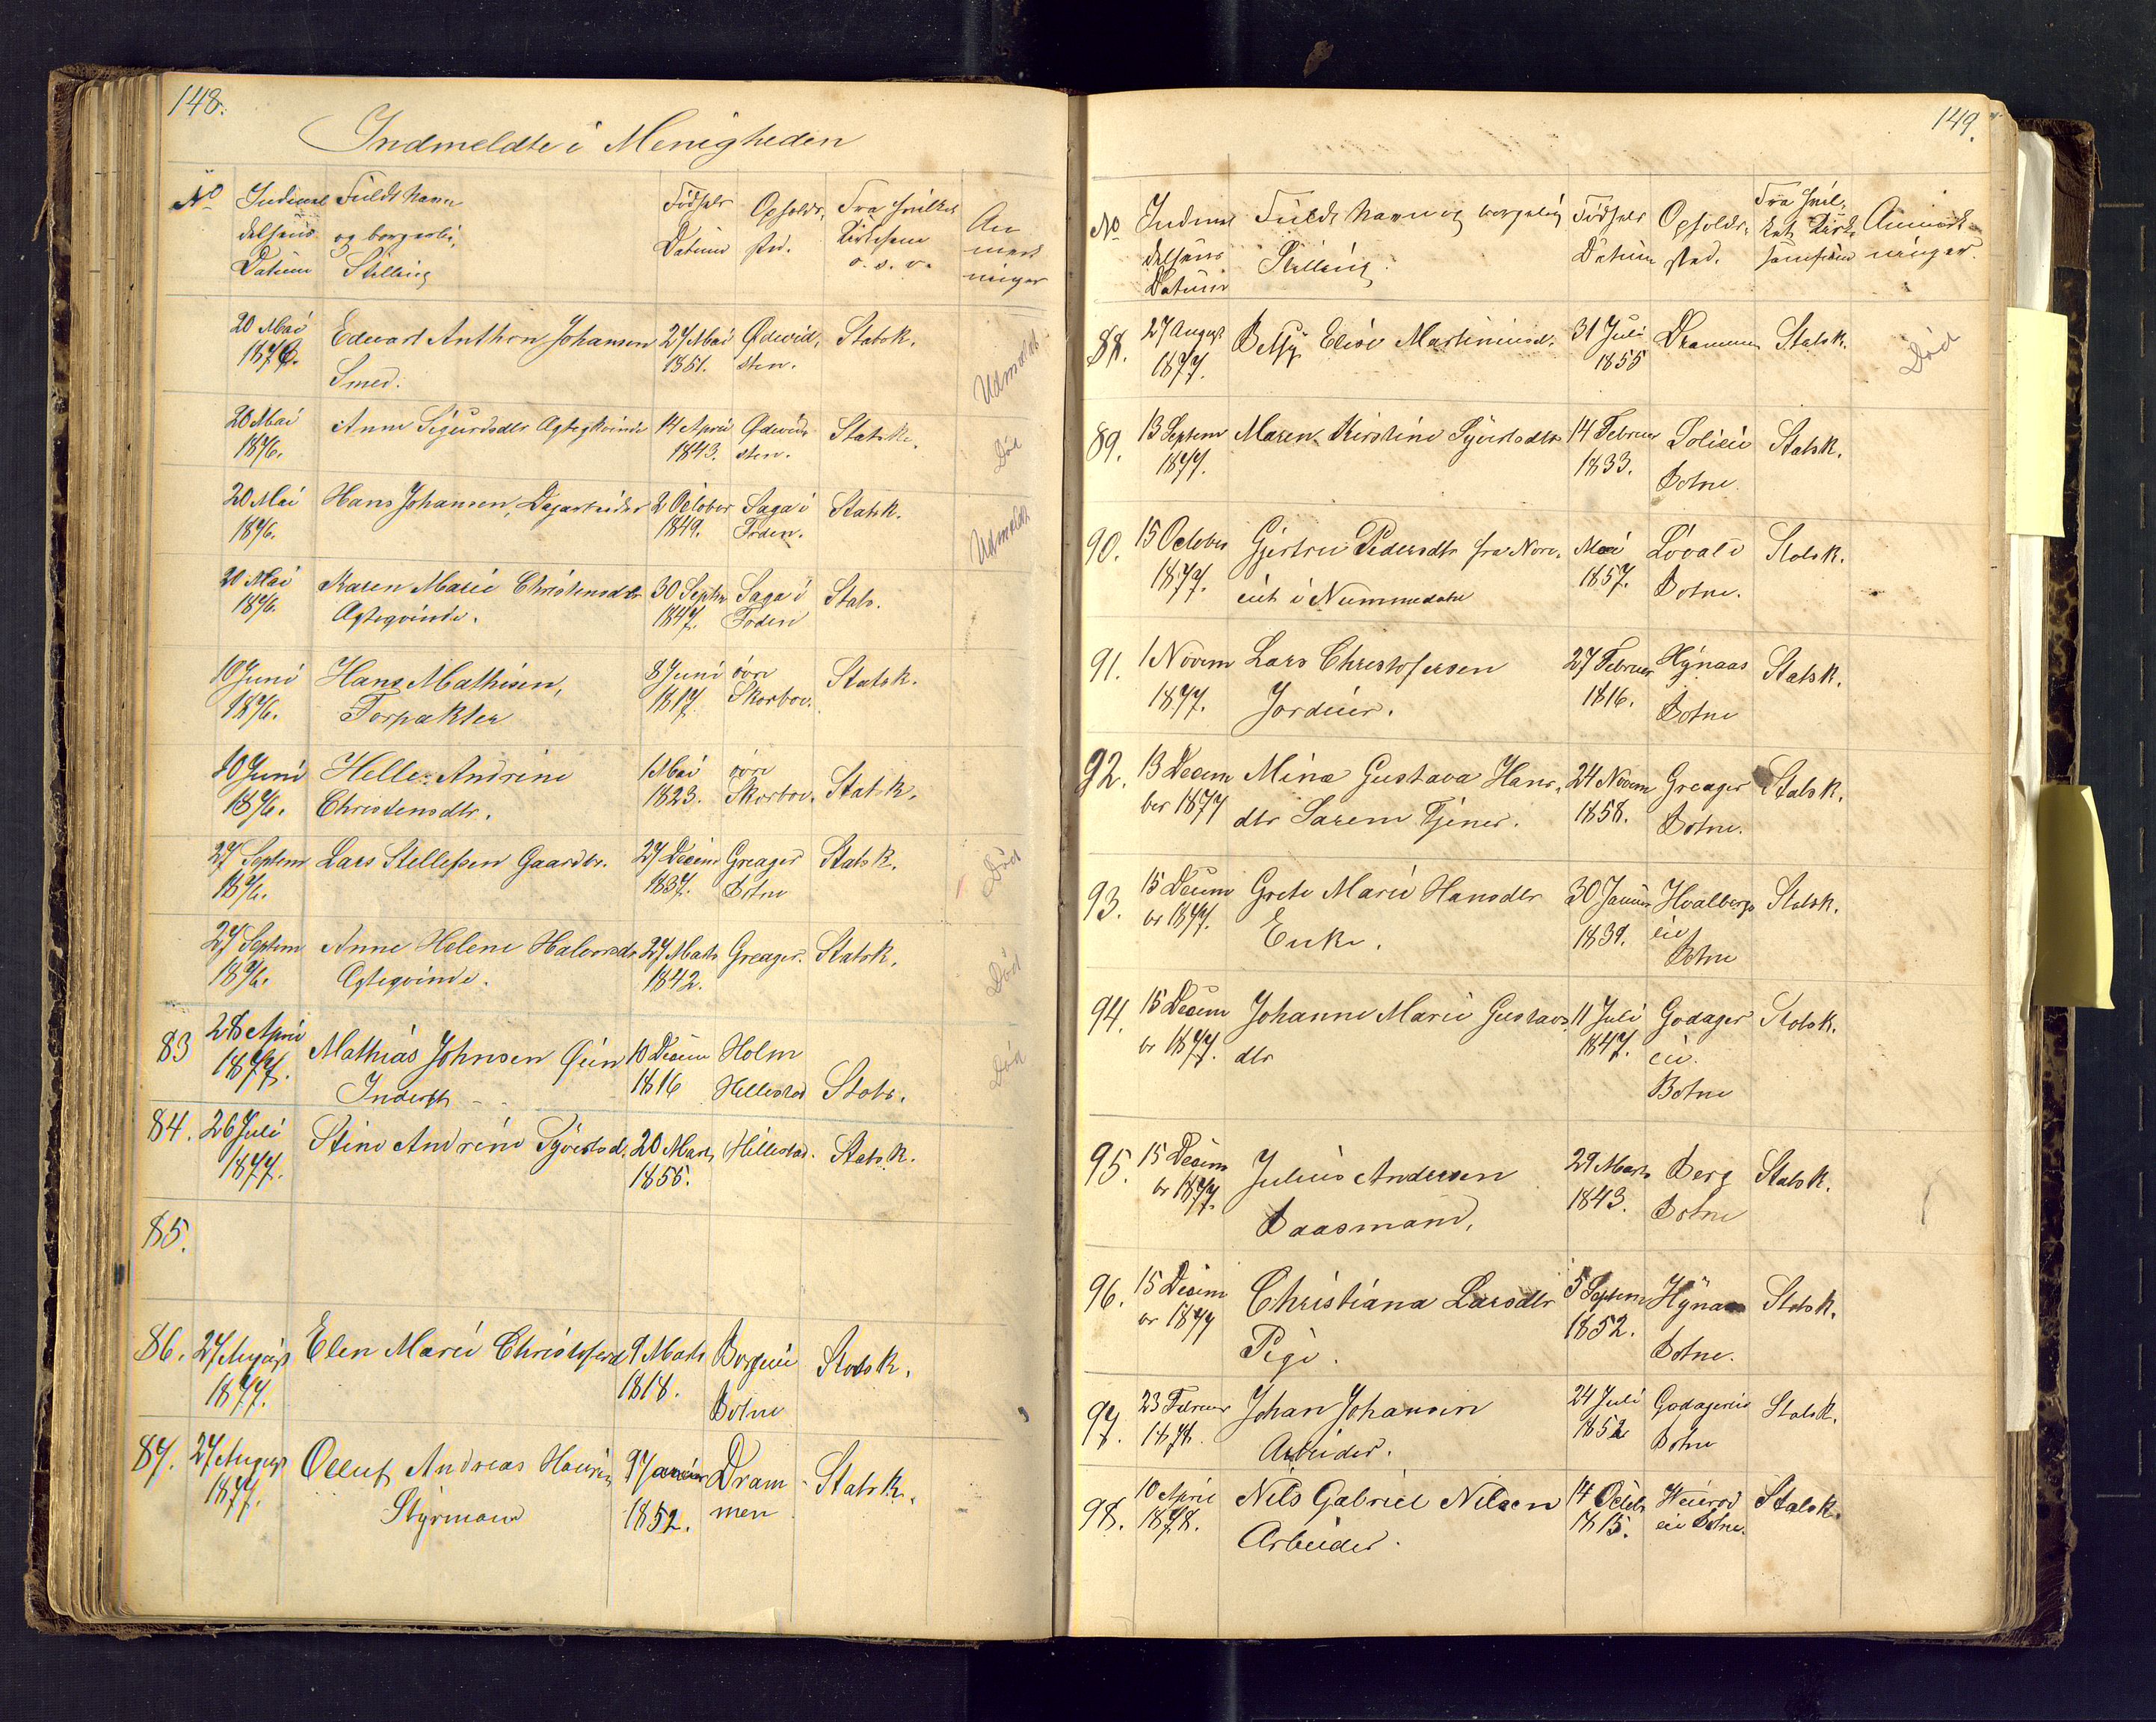 148.
Indmeldte i Menigheden
No
Indmel
delsens
Datum
Fuldt Navn
og borgerlig
Stilling
Fødsels
Datum
Opholds,
sted.
Fra hvilket
Kirkesam
o. s. v.
An
mærk
ninger
20 Mai Edvart Anthon Johansen 27 Mai Statsk. Udmeldt
1876. Smed. 1851. sten.
20 Mai Anne Sigurdsdtr Ægtegkvinde 14 April Statsk. Død
1876. 1843. sten.
20 Mai Hans Johansen, Dagarbeider 2 October Saga i Statsk. Udmeldt
1876. 1849. Foden.
20 Mai Karen Marie Christensdtr 30 Septbr Saga i Stats.
1876. Ægteqvinde. 1847. Foden
10 Juni Hans Mathisen, 8 Juni øvre Statsk.
1876. Forpakter 1817. Skorbov.
10 Juni Helle Andrine 1 Mai øvre Statsk.
1876. Christensdtr. 1823. Skorbov.
27 Septem Lars Stellefsen Gaardbr. 27 Decem Greager Statsk. Død
1876. 1837. Botne
27 Septem Anne Helene Halvorsdr 27 Marts Greager. Statsk. Død
1876. Ægteqvinde. 1842.
83 28 April Mathias Johnsen 10 Decem Holm Død
1877. Inderst 1816 Hillestad Stats.
84. 26 Juli Stine Andrine Syvertsd. 20 Marts Hillestad. Statsk.
1877. 1855.
85.
86. 27 August Elen Marie Christofersd 9 Marts Statsk.
1877. 1818. Botne
87. 27 August Olluf Andreas 9 Januar Dram- Statsk.
1877. Styrmand 1852. men
149.
No
Indmel
delsens
Datum
Fuldt Navn og borgerlig
Stilling.
Fødsels
Datum
Opholds,
sted.
Fra hvil,
ket Kirke
samfund
Anmærk
ninger.
88. 27 August Betsy Elise Martiniusd. 31 Juli Drammen Statsk. Død
1877. 1855
89. 13 Septem Maren Kirstine Syvertsdtr 14 Februar Solieie Statsk.
1877. 1833. Botne.
90. 15 October Gjertru Pedersdtr fra Nore, Mai Løvald Statsk.
1877. eiet i Nummedahl 1857. Botne.
91. 1 Novem Lars Christofersen 27 Februar Hynaas Statsk.
1877. Jordeier. 1816. Botne
92. 13 Decem Mina Gustava Hans, 24 Novem Greager Statsk.
ber 1877 dtr Sarem Tjener. 1858. Botne.
93. 15 Decem Grete Marie Hansdtr 30 Januar Hvalbergs Statsk.
br 1877. Enke. 1839. eie
Botne
94. 15 Decem Johanne Marie Gustavs 11 Juli Godager Statsk.
br 1877. dtr 1847. eie.
Botne
95. 15 Decem Julius Andersen 29 Marts Berg Statsk.
br 1877. Baasmand, 1843. Botne
96. 15 Decem Christiana Larsdtr 5 Septem Hynaas Statsk.
br 1877 Pige. 1852. Botne.
97. 23 Februar Johan Johansen 24 Juli Godagereie Statsk.
1878. Arbeider. 1852 Botne
98. 10 April Nils Gabriel Nilsen 14 Octobr Weierød Statsk.
1878. Arbeider. 1815. eie Botne.